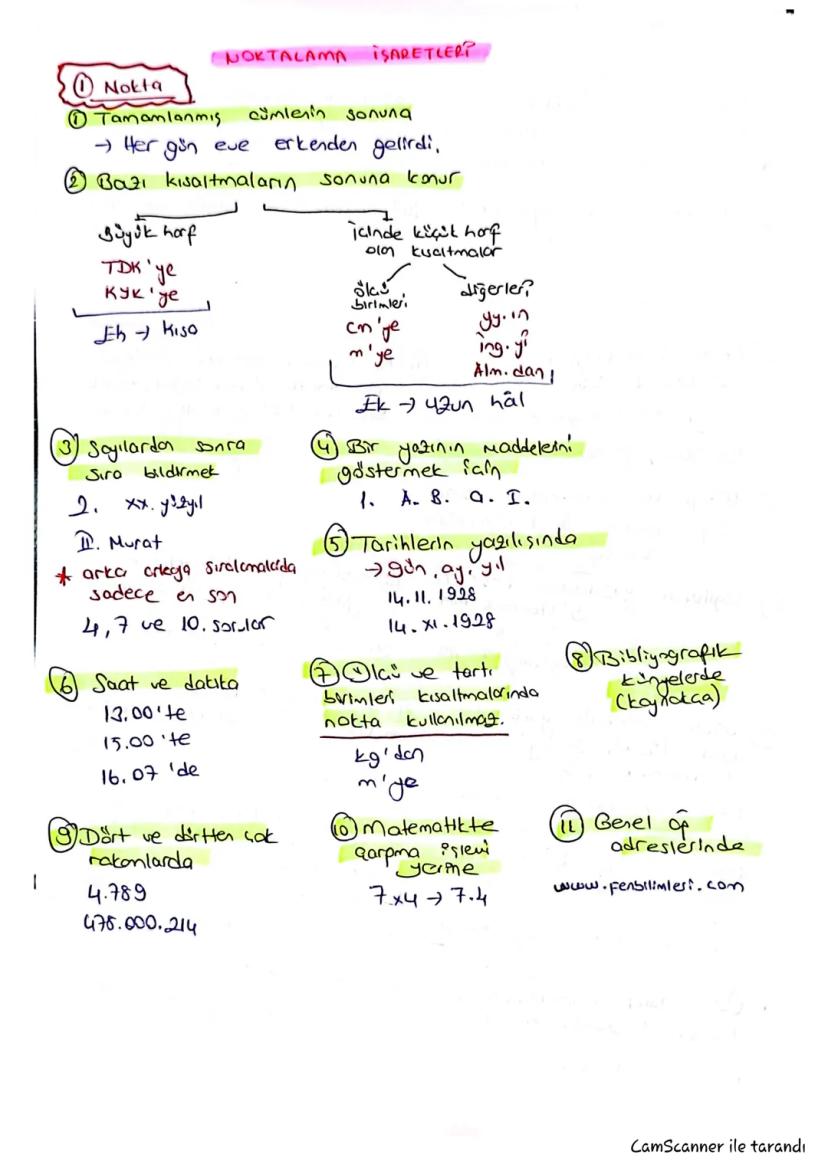 NOKTALAMA İŞARETLERİ
① Nokta
① Tamamlanmış cümlenin sonuna
→ Her gün eve erkenden gelirdi.
② Bazı kısaltmaların sonuna konur
Büyük harf
TDK'ye
KYK'ye
Ek → kısa
içinde küçük harf
olan kısaltmalar
ölçü
birimleri
cm'ye
m'ye
diğerleri
yy.ın
ing.yi
Alm.dan
Ek → uzun hâl
③ Sayılardan sonra
sıra bildirmek
2. XX. yüzyıl
II. Murat
* arka arkaya sıralamalarda
sadece en son
4, 7 ve 10. sorular
④ Bir yazının maddelerini
göstermek için
1. A. B. a. I.
⑤ Tarihlerin yazılışında
→ gün, ay, yıl
14.11.1928
14.XI.1928
⑥ Saat ve dakika
13.00'te
15.00'te
16.07'de
⑦ Ölçü ve tartı
birimleri kısaltmalarında
nokta kullanılmaz.
kg'dan
m'ye
⑧ Bibliyografik
künyelerde
(kaynakça)
⑨ Dört ve dörtten çok
rakamlarda
4.789
475.000.214
⑩ Matematikte
çarpma işlemi
yerine
7x4 → 7.4
⑪ Genel ağ
adreslerinde
www.fenbilimleri.com
CamScanner ile tarandı